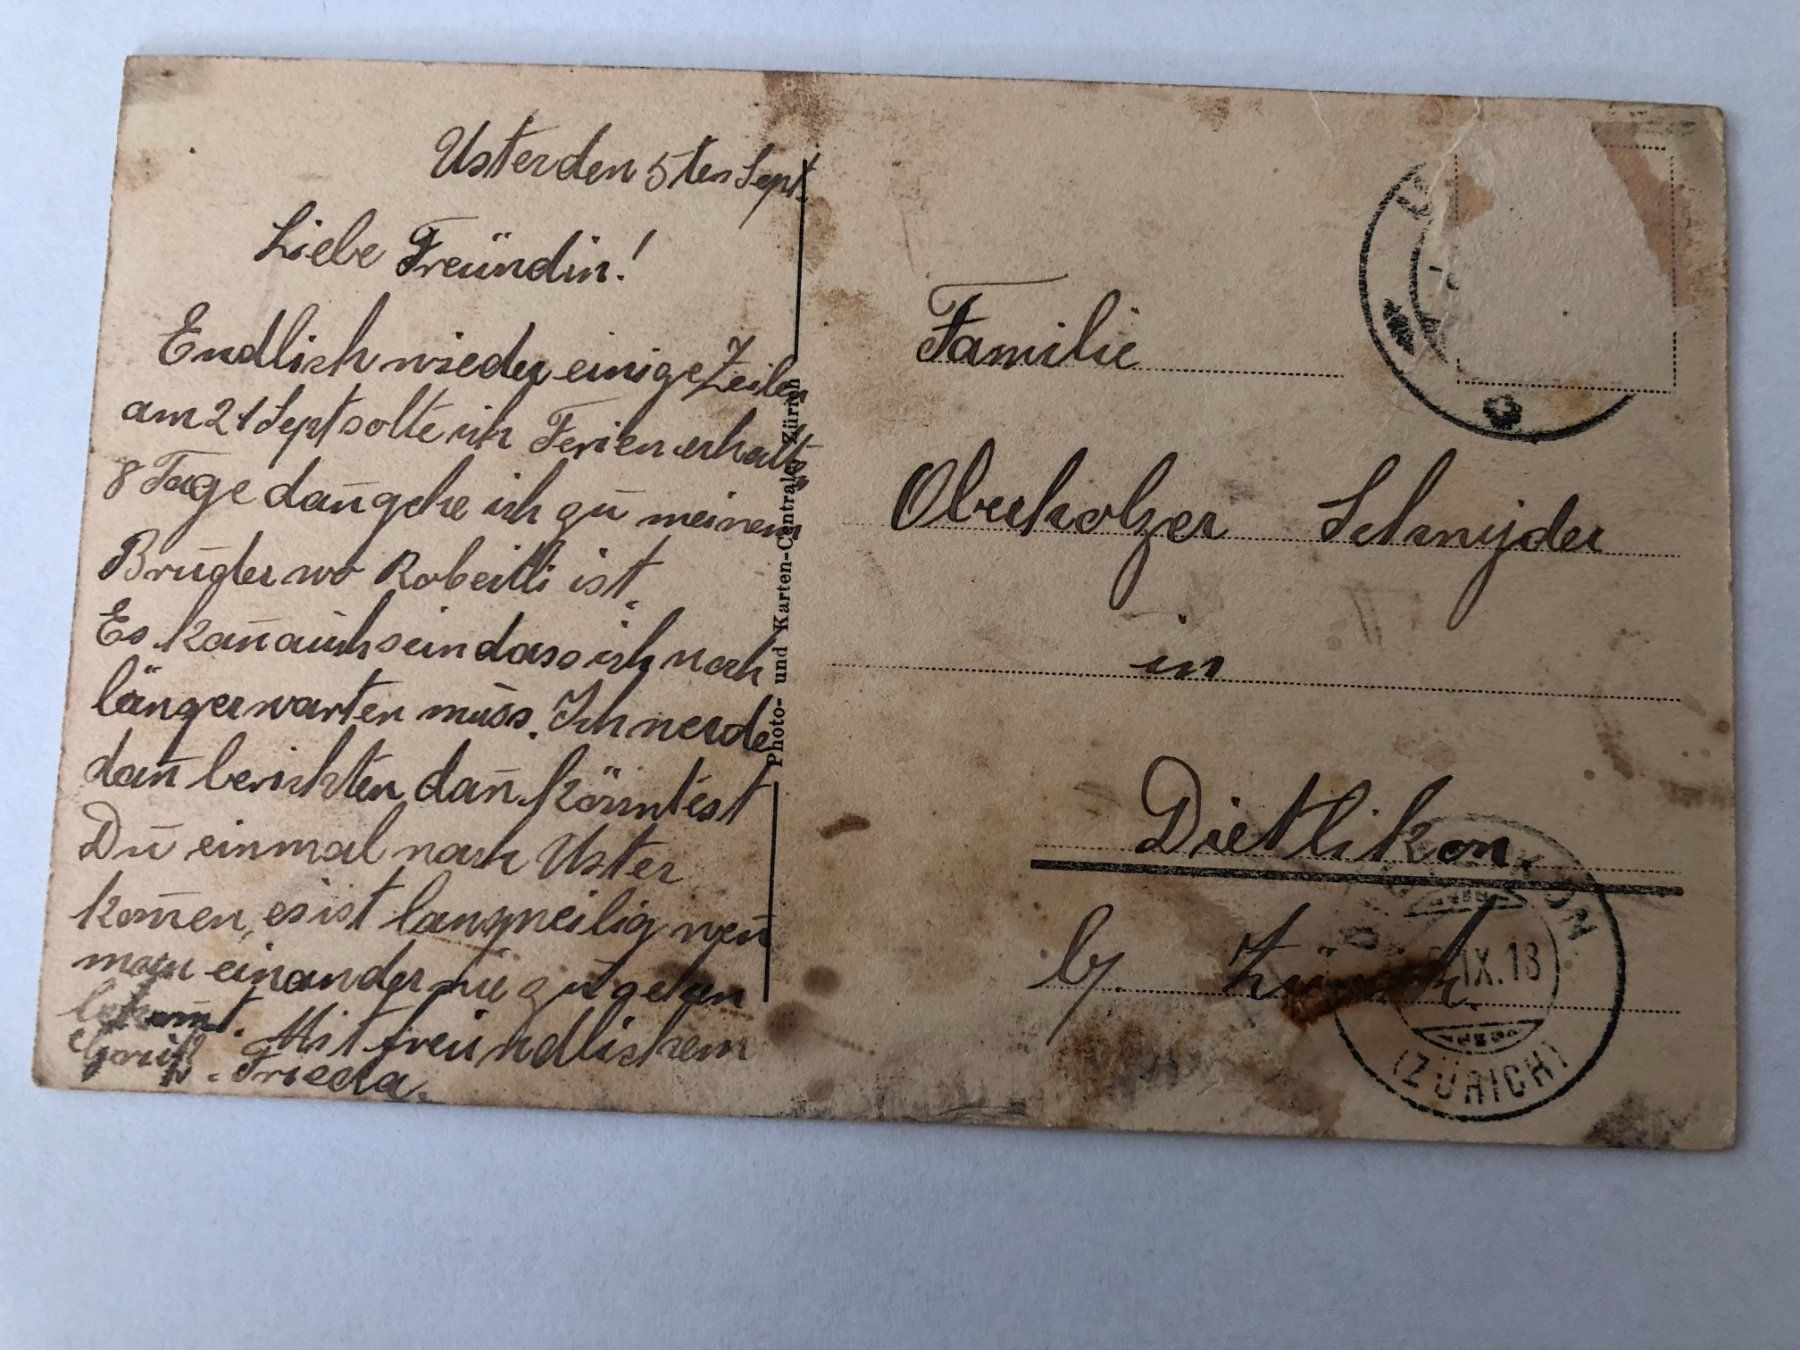 Uster den 5ten Sept.
Liebe Freündin!
Endlich wieder einige Zeilen
am 21 Sept solte ich Ferien erhalt
8 Tage dan̄ gehe ich zū meinem
Brūder wo Robertli ist.
Es kan̄ aūch sein dass ich noch
länger warten mūss. Ich werde
dan̄ berichten dan̄ könntest
Dū einmal nach Uster
kom̄en, es ist langweilig wen̄
man einander nie zū gesehn
bekom̄t. Mit freundlichem
Frieda.
Photo- und Karten-Centrale Zürich
Familie
Oberholzer Schnyder
in
Dietlikon.
b/. Zürich.
IX.18
(ZÜRICH)